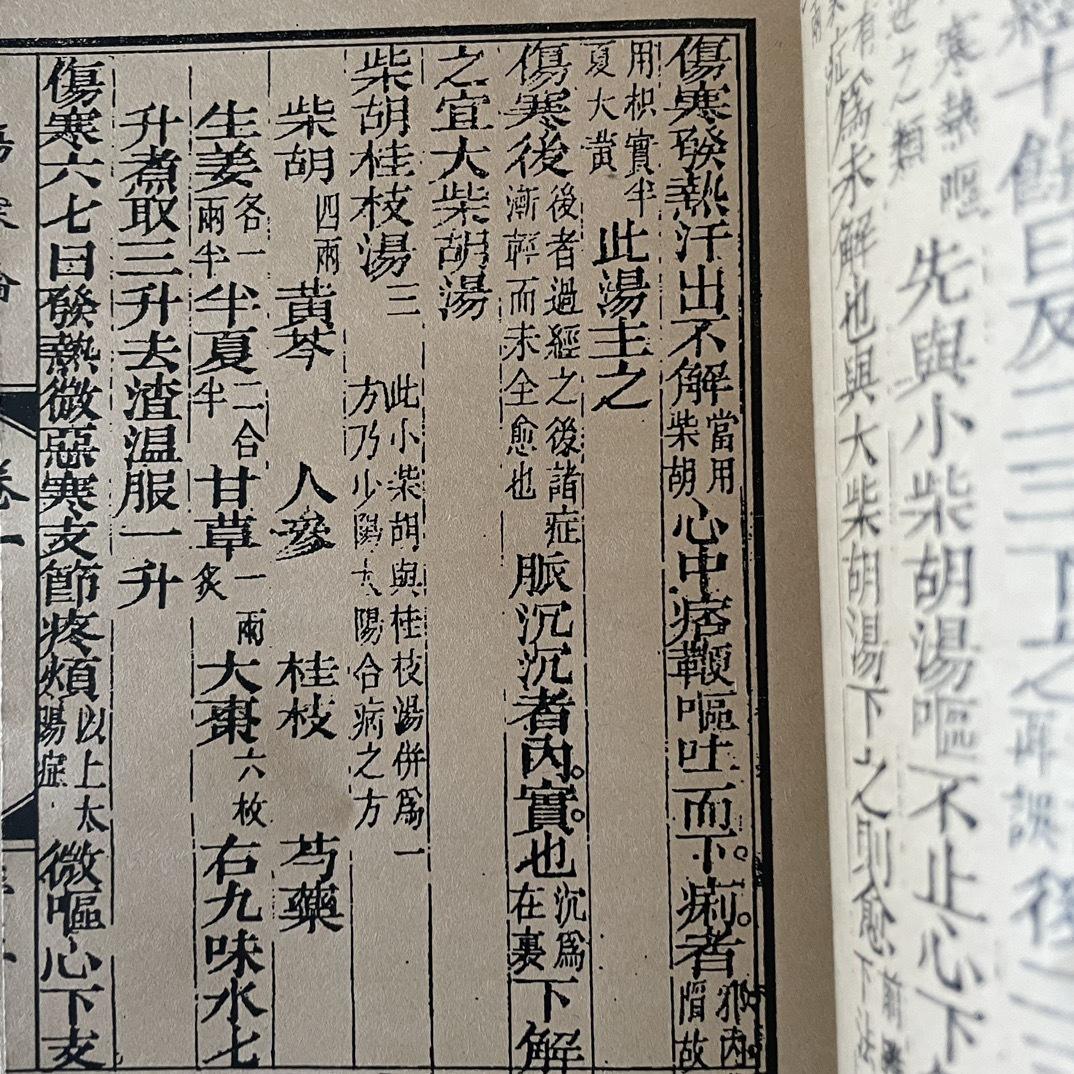 經十餘日反二三下之再誤後二三
寒熱嘔世之類先與小柴胡湯嘔不止心下
爲未解也與大柴胡湯下之則愈
傷寒發熱汗出不解當用柴胡心中痞鞕嘔吐而下。痢。者邪内陷故
用枳實半夏大黄此湯主之
傷寒後後者過經之後諸症漸輕而未全愈也脈沉沉者内。實。也沉爲在裏下解
之宜大柴胡湯
柴胡桂枝湯三此小柴胡與桂枝湯併爲一方乃少陽太陽合病之方
柴胡四兩 黄芩 人參 桂枝 芍藥
生姜各一兩半半夏二合半甘草一兩炙大棗六枚右九味水七
升煮取三升去渣温服一升
傷寒六七日發熱微惡寒支節疼煩以上太陽症微嘔心下支
卷一